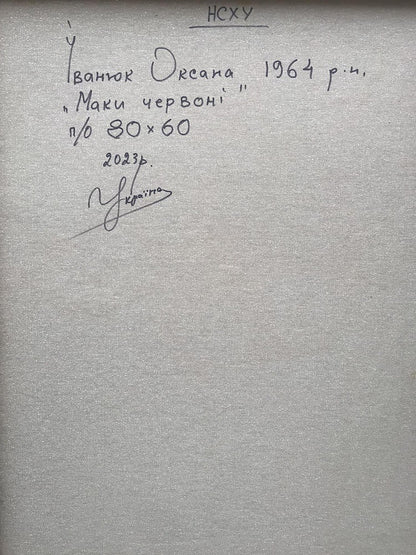 НСХУ
Іванюк Оксана 1964 р.н.
„Маки червоні"
п/о 80×60
2023р.
Україна